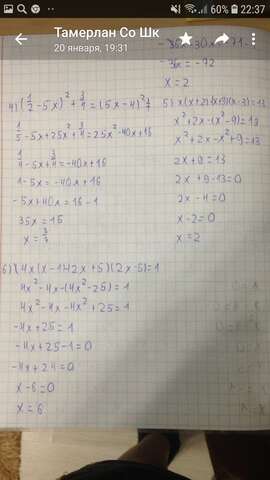 60% 22:37
Тамерлан Со Шк
20 января, 19:31
-36x = -72
x = 2
4) (1/2 - 5x)² + 3/4 = (5x - 4)²
1/5 - 5x + 25x² + 3/4 = 25x² - 40x + 16
1/4 - 5x + 3/4 = -40x + 16
1 - 5x = -40x + 16
-5x + 40x = 16 - 1
35x = 15
x = 3/7
5) x(x+2)-(x+3)(x-3)=13
x²+2x-(x²-9)=13
x²+2x-x²+9=13
2x+9=13
2x+9-13=0
2x-4=0
x-2=0
x=2
6) 4x(x-1)-(2x+5)(2x-5)=1
4x²-4x-(4x²-25)=1
4x²-4x-4x²+25=1
-4x+25=1
-4x+25-1=0
-4x+24=0
x-6=0
x=6